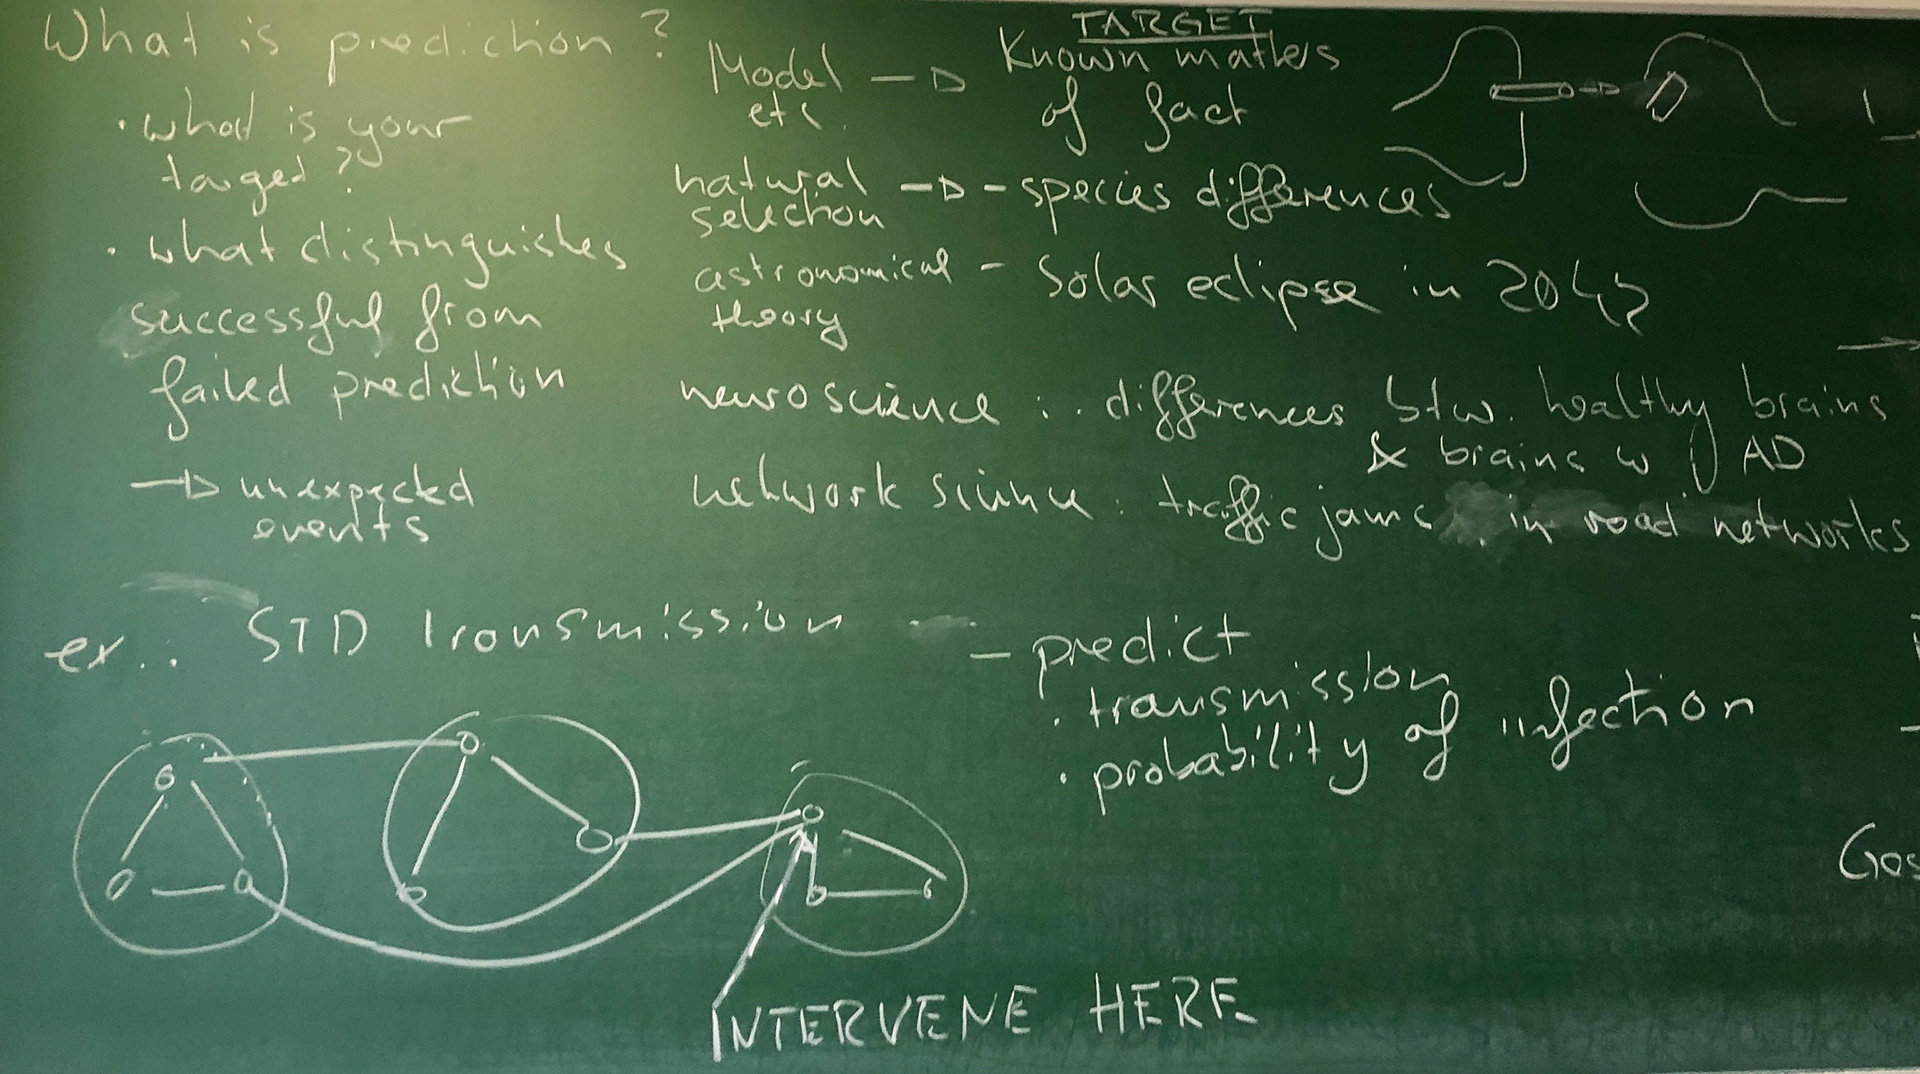 What is prediction ?
· what is your
target ?
· what distinguishes
successful from
failed prediction
unexpected
events
TARGET
Model
etc.
Known matters
of fact
natural
selection
- species differences
astronomical
theory
- Solar eclipse in
neuroscience : . differences btw. healthy brains
& brains w AD
network science : traffic jams in road networks
ex.. STD transmission
- predict
· transmission
· probability of infection
INTERVENE HERE